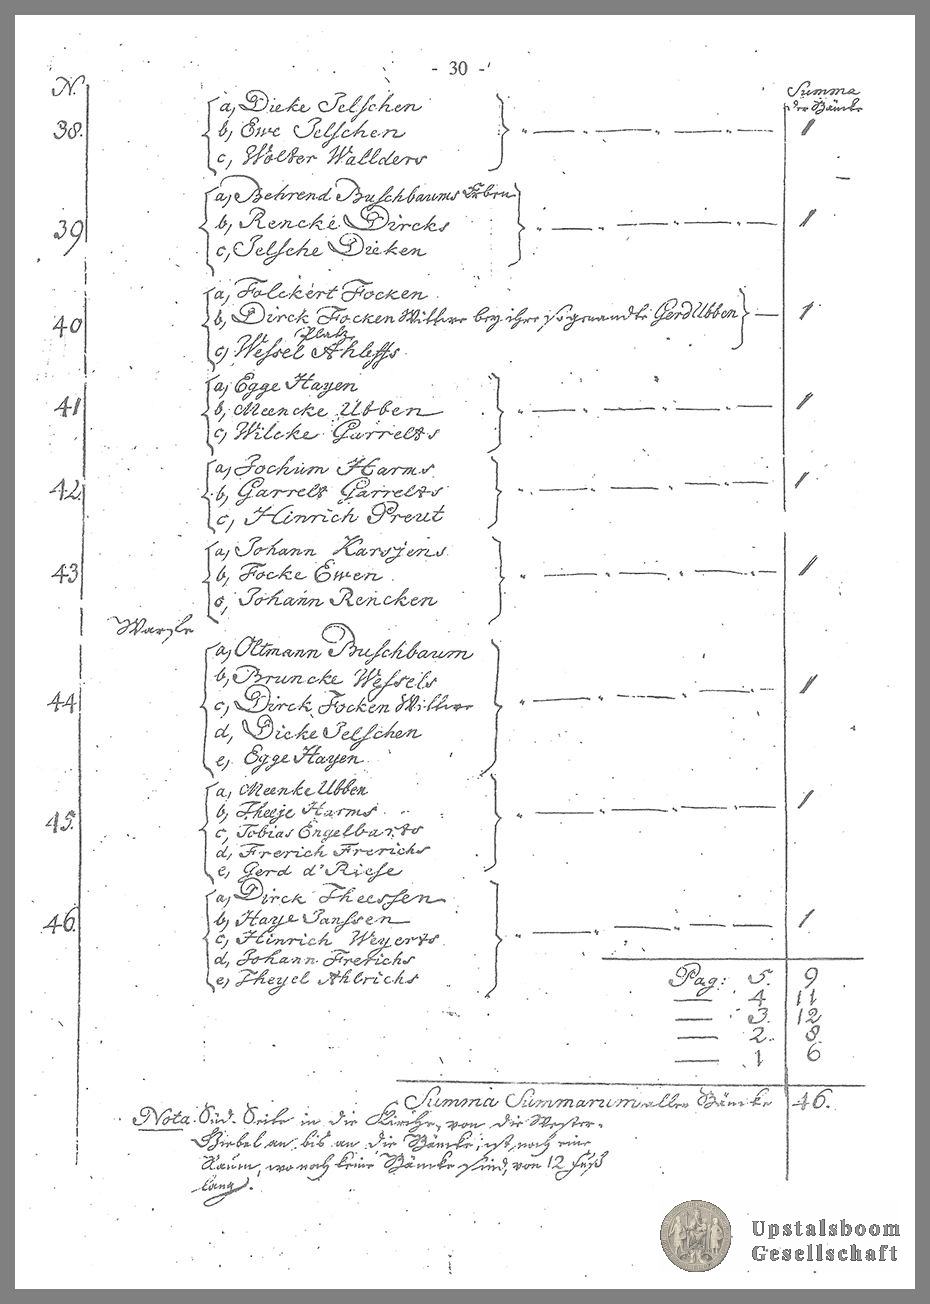 - 30 -
N. Summa
der Bäncke
a, Dieke Jelschen
38. b, Ewe Jelschen 1
c, Wolter Wallders
a, Behrend Buschbaums Erben
39 b, Rencke Dircks 1
c, Jelsche Dieken
a, Folckert Focken
40 b, Dirck Focken Wittwe bey ihre so genandte Gerd Ubben 1
Platz
c, Wessel Ahleffs
a, Egge Hayen
41 b, Meencke Ubben 1
c, Wilcke Garrelts
a, Jochum Harms
42. b, Garrelt Garrelts 1
c, Hinrich Preut
a, Johann Karsjens
43 b, Focke Ewen 1
c, Johann Rencken
a, Oltmann Buschbaum
b, Bruncke Wessels
44 c, Dirck Focken Wittwe 1
d, Dieke Jelschen
e, Egge Hayen
a, Meenke Ubben
b, Theeje Harms
45. c, Tobias Engelbarts 1
d, Frerich Frerichs
e, Gerd d'Riese
a, Dirck Theessen
46. b, Haye Janssen 1
c, Hinrich Weyerts
d, Johann Frerichs
e, Theyel Ahlrichs
Pag: 5. 9
— 4 11
— 3. 12
— 2. 8
— 1 6
Summa Summarum aller Bäncke 46.
Nota. Süd-Seite in die Kirche, von die Wester-
Giebel an, bis an die Bäncke, ist noch eine
Raum, wo noch keine Bäncke sind, von 12 Fuß
lang.
Upstalsboom
Gesellschaft